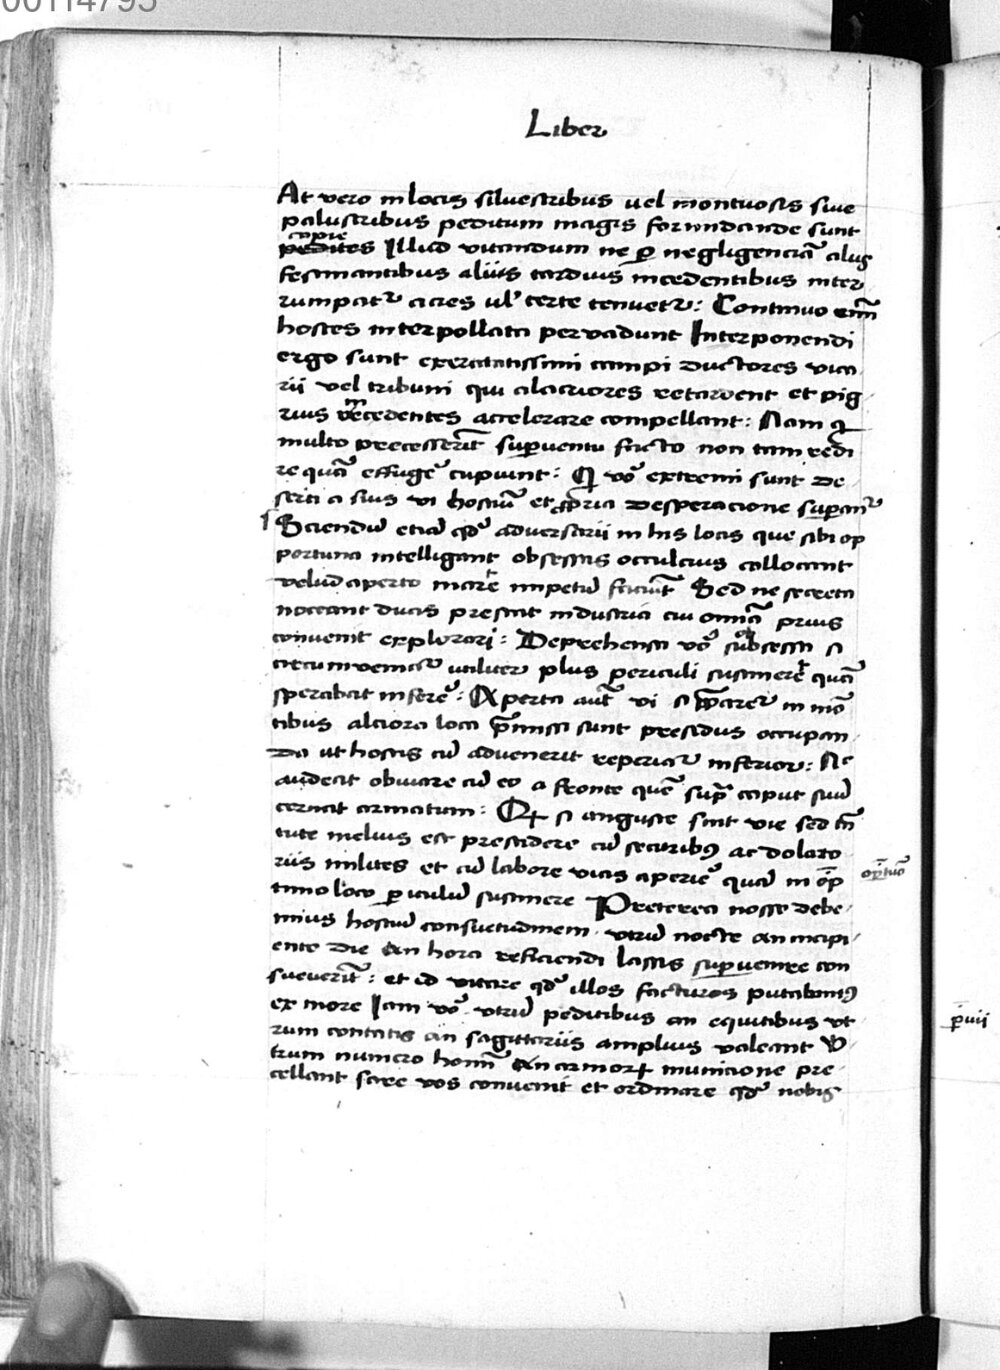 00114795
Liber
At vero in locis silvestribus vel montuosis sive
palustribus peditum magis formidande sunt
copie
pedites Illud vitandum ne ꝑ negligenciā aliis
festinantibus aliis tardius incedentibus inter
rumpatᷣ acies vl' certe tenuetᷣ: Continuo enī
hostes interpollata pervadunt Interponendi
ergo sunt exercitatissimi campi ductores vica
rii vel tribuni qui alacriores retardent et pig
rius incedentes accelerare compellant: Nam q
multo precesserīt suꝑventu facto non tam redi
re quā effugē cupiunt: Qi vō extremi sunt de
serti a suis vi hostiū et ꝓpria desperacione suꝑantᷣ
Sciendū etiā qd' adversarii in his locis que sibi op
portuna intelligant obsessas occulcius collocant
velud aperto marte impetū faciūt Sed ne secreta
noceant ducis prestat industria cui omīa prius
convenit explorari: Deprehensa vō subsessa si
circumveniatᷣ utiliter plus periculi sustinet quā
sperabat inferrē: Aperta aūt vi si ꝑaretᷣ in mō
tibus alciora loca p̄missis sunt presidiis occupan
da ut hostis cū advenerit reperiatᷣ inferior: Ne
audeat obviare cū eo a fronte quē supᷓ caput suū
cernat armatum: Qꝫ si anguste sint vie sed tn̄
tute melius est precidere cū securibꝫ ac dolato
riis milites et cū labore vias aperirē quā in op̄
timo loco ꝑiculū sustinere Preterea nosse debe
mus hostiū consuetudinem utrū nocte an incipi
ente die an hora reficiendi lassis suꝑvenire con
sueverīt: et id vitare qd' illos facturos putabimꝫ
ex more Iam vō utrū peditibus an equitibus ut
rum contatis an sagittariis amplius valeant U
trum numero homī an armorꝝ municione pre
cellant scire vos convenit et ordinare qd' nobis